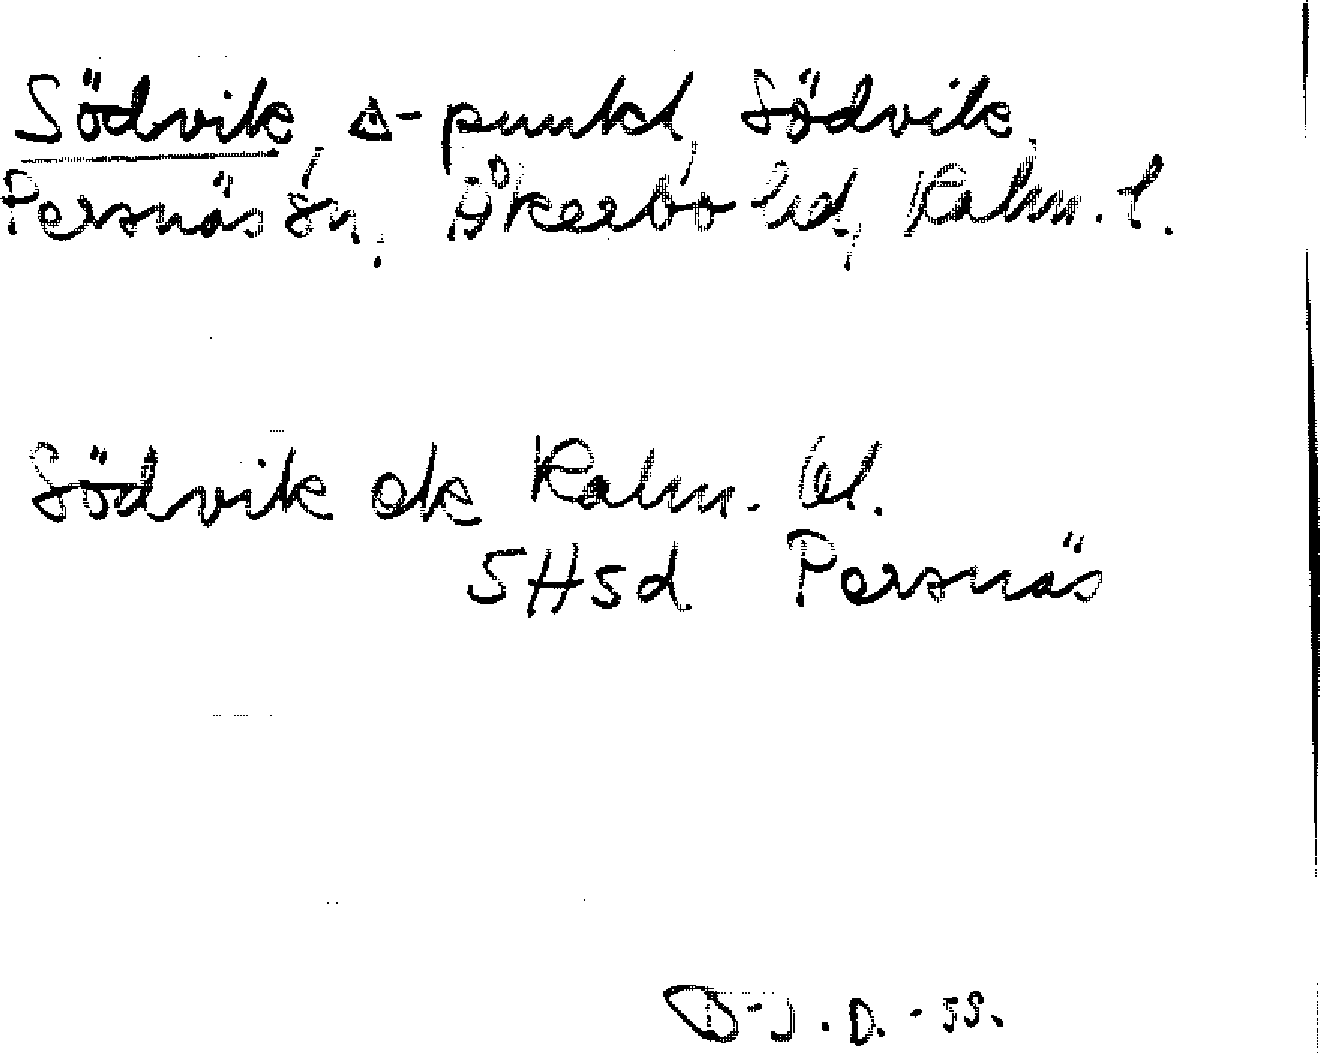 Södvik, △-punkt, Södvik,
Persnäs sn, Åkerbo hd, Kalm. l.
Södvik ek Kalm. lel.
5H5d Persnäs
B-J. D. -55.